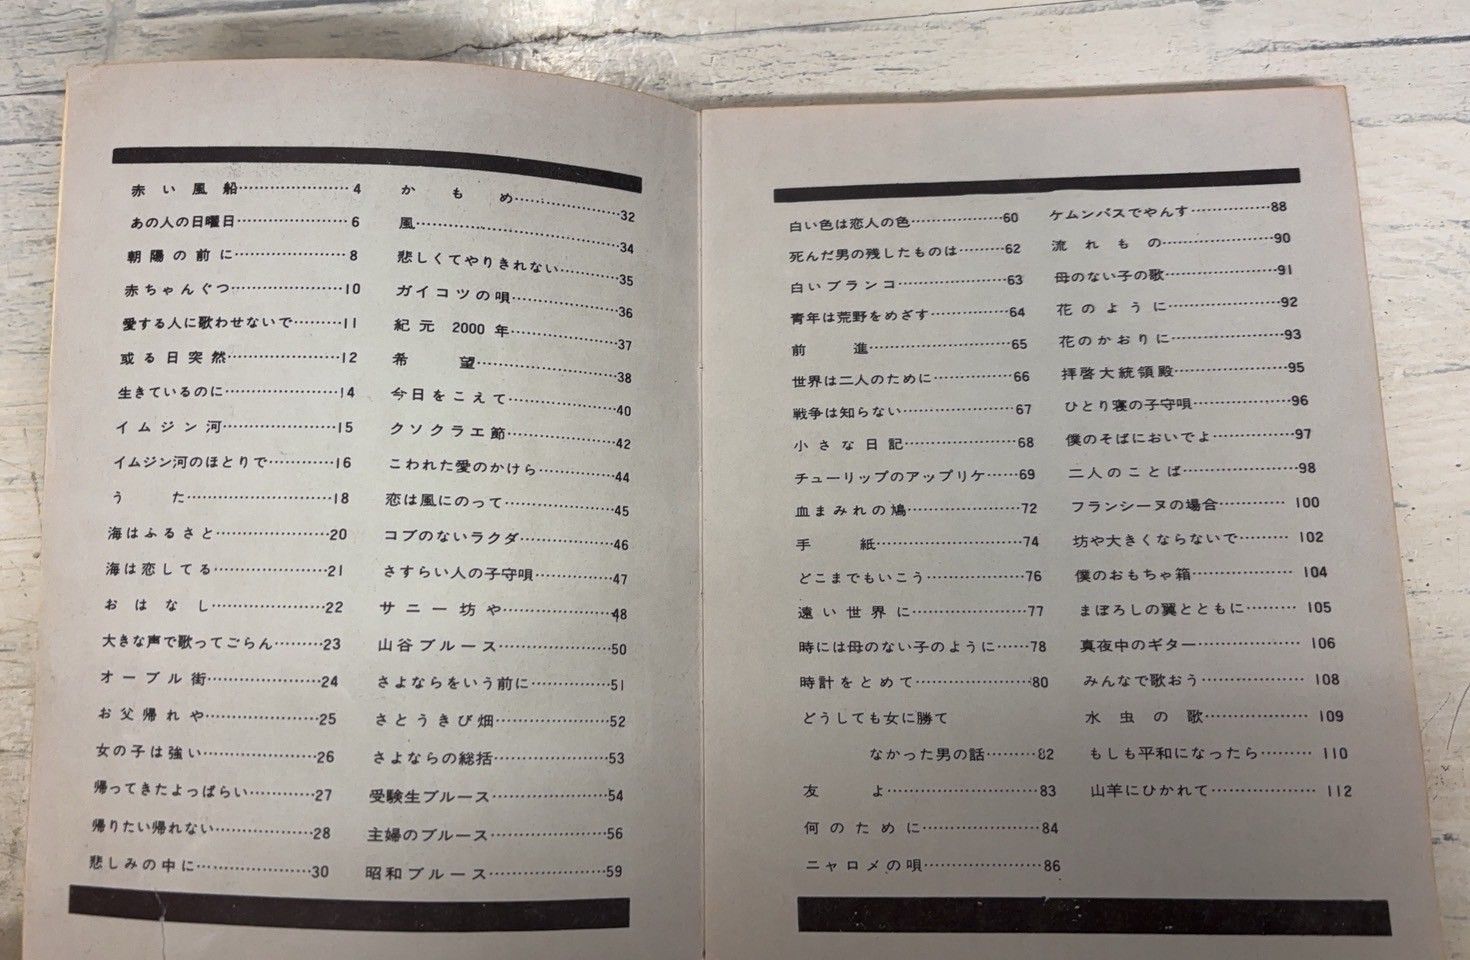 赤い風船…………………4
あの人の日曜日…………………6
朝陽の前に…………………8
赤ちゃんぐつ…………………10
愛する人に歌わせないで………11
或る日突然…………………12
生きているのに…………………14
イムジン河…………………15
イムジン河のほとりで…………16
うた………………………18
海はふるさと…………………20
海は恋してる…………………21
おはなし…………………22
大きな声で歌ってごらん………23
オーブル街…………………24
お父帰れや…………………25
女の子は強い…………………26
帰ってきたよっぱらい…………27
帰りたい帰れない………………28
悲しみの中に…………………30
かもめ…………………32
風…………………………………34
悲しくてやりきれない…………35
ガイコツの唄…………………36
紀元 2000 年…………………37
希望………………………38
今日をこえて…………………40
クソクラエ節…………………42
こわれた愛のかけら……………44
恋は風にのって…………………45
コブのないラクダ………………46
さすらい人の子守唄……………47
サニー坊や…………………48
山谷ブルース…………………50
さよならをいう前に……………51
さとうきび畑…………………52
さよならの総括…………………53
受験生ブルース…………………54
主婦のブルース…………………56
昭和ブルース…………………59
白い色は恋人の色………………60
死んだ男の残したものは………62
白いブランコ…………………63
青年は荒野をめざす……………64
前進………………………65
世界は二人のために……………66
戦争は知らない…………………67
小さな日記…………………68
チューリップのアップリケ……69
血まみれの鳩…………………72
手紙………………………74
どこまでもいこう………………76
遠い世界に…………………77
時には母のない子のように……78
時計をとめて…………………80
どうしても女に勝て
なかった男の話………82
友よ………………………83
何のために…………………84
ニャロメの唄…………………86
ケムンパスでやんす……………88
流れもの…………………90
母のない子の歌…………………91
花のように…………………92
花のかおりに…………………93
拝啓大統領殿…………………95
ひとり寝の子守唄………………96
僕のそばにおいでよ……………97
二人のことば…………………98
フランシーヌの場合…………100
坊や大きくならないで………102
僕のおもちゃ箱………………104
まぼろしの翼とともに………105
真夜中のギター………………106
みんなで歌おう………………108
水虫の歌………………109
もしも平和になったら………110
山羊にひかれて………………112